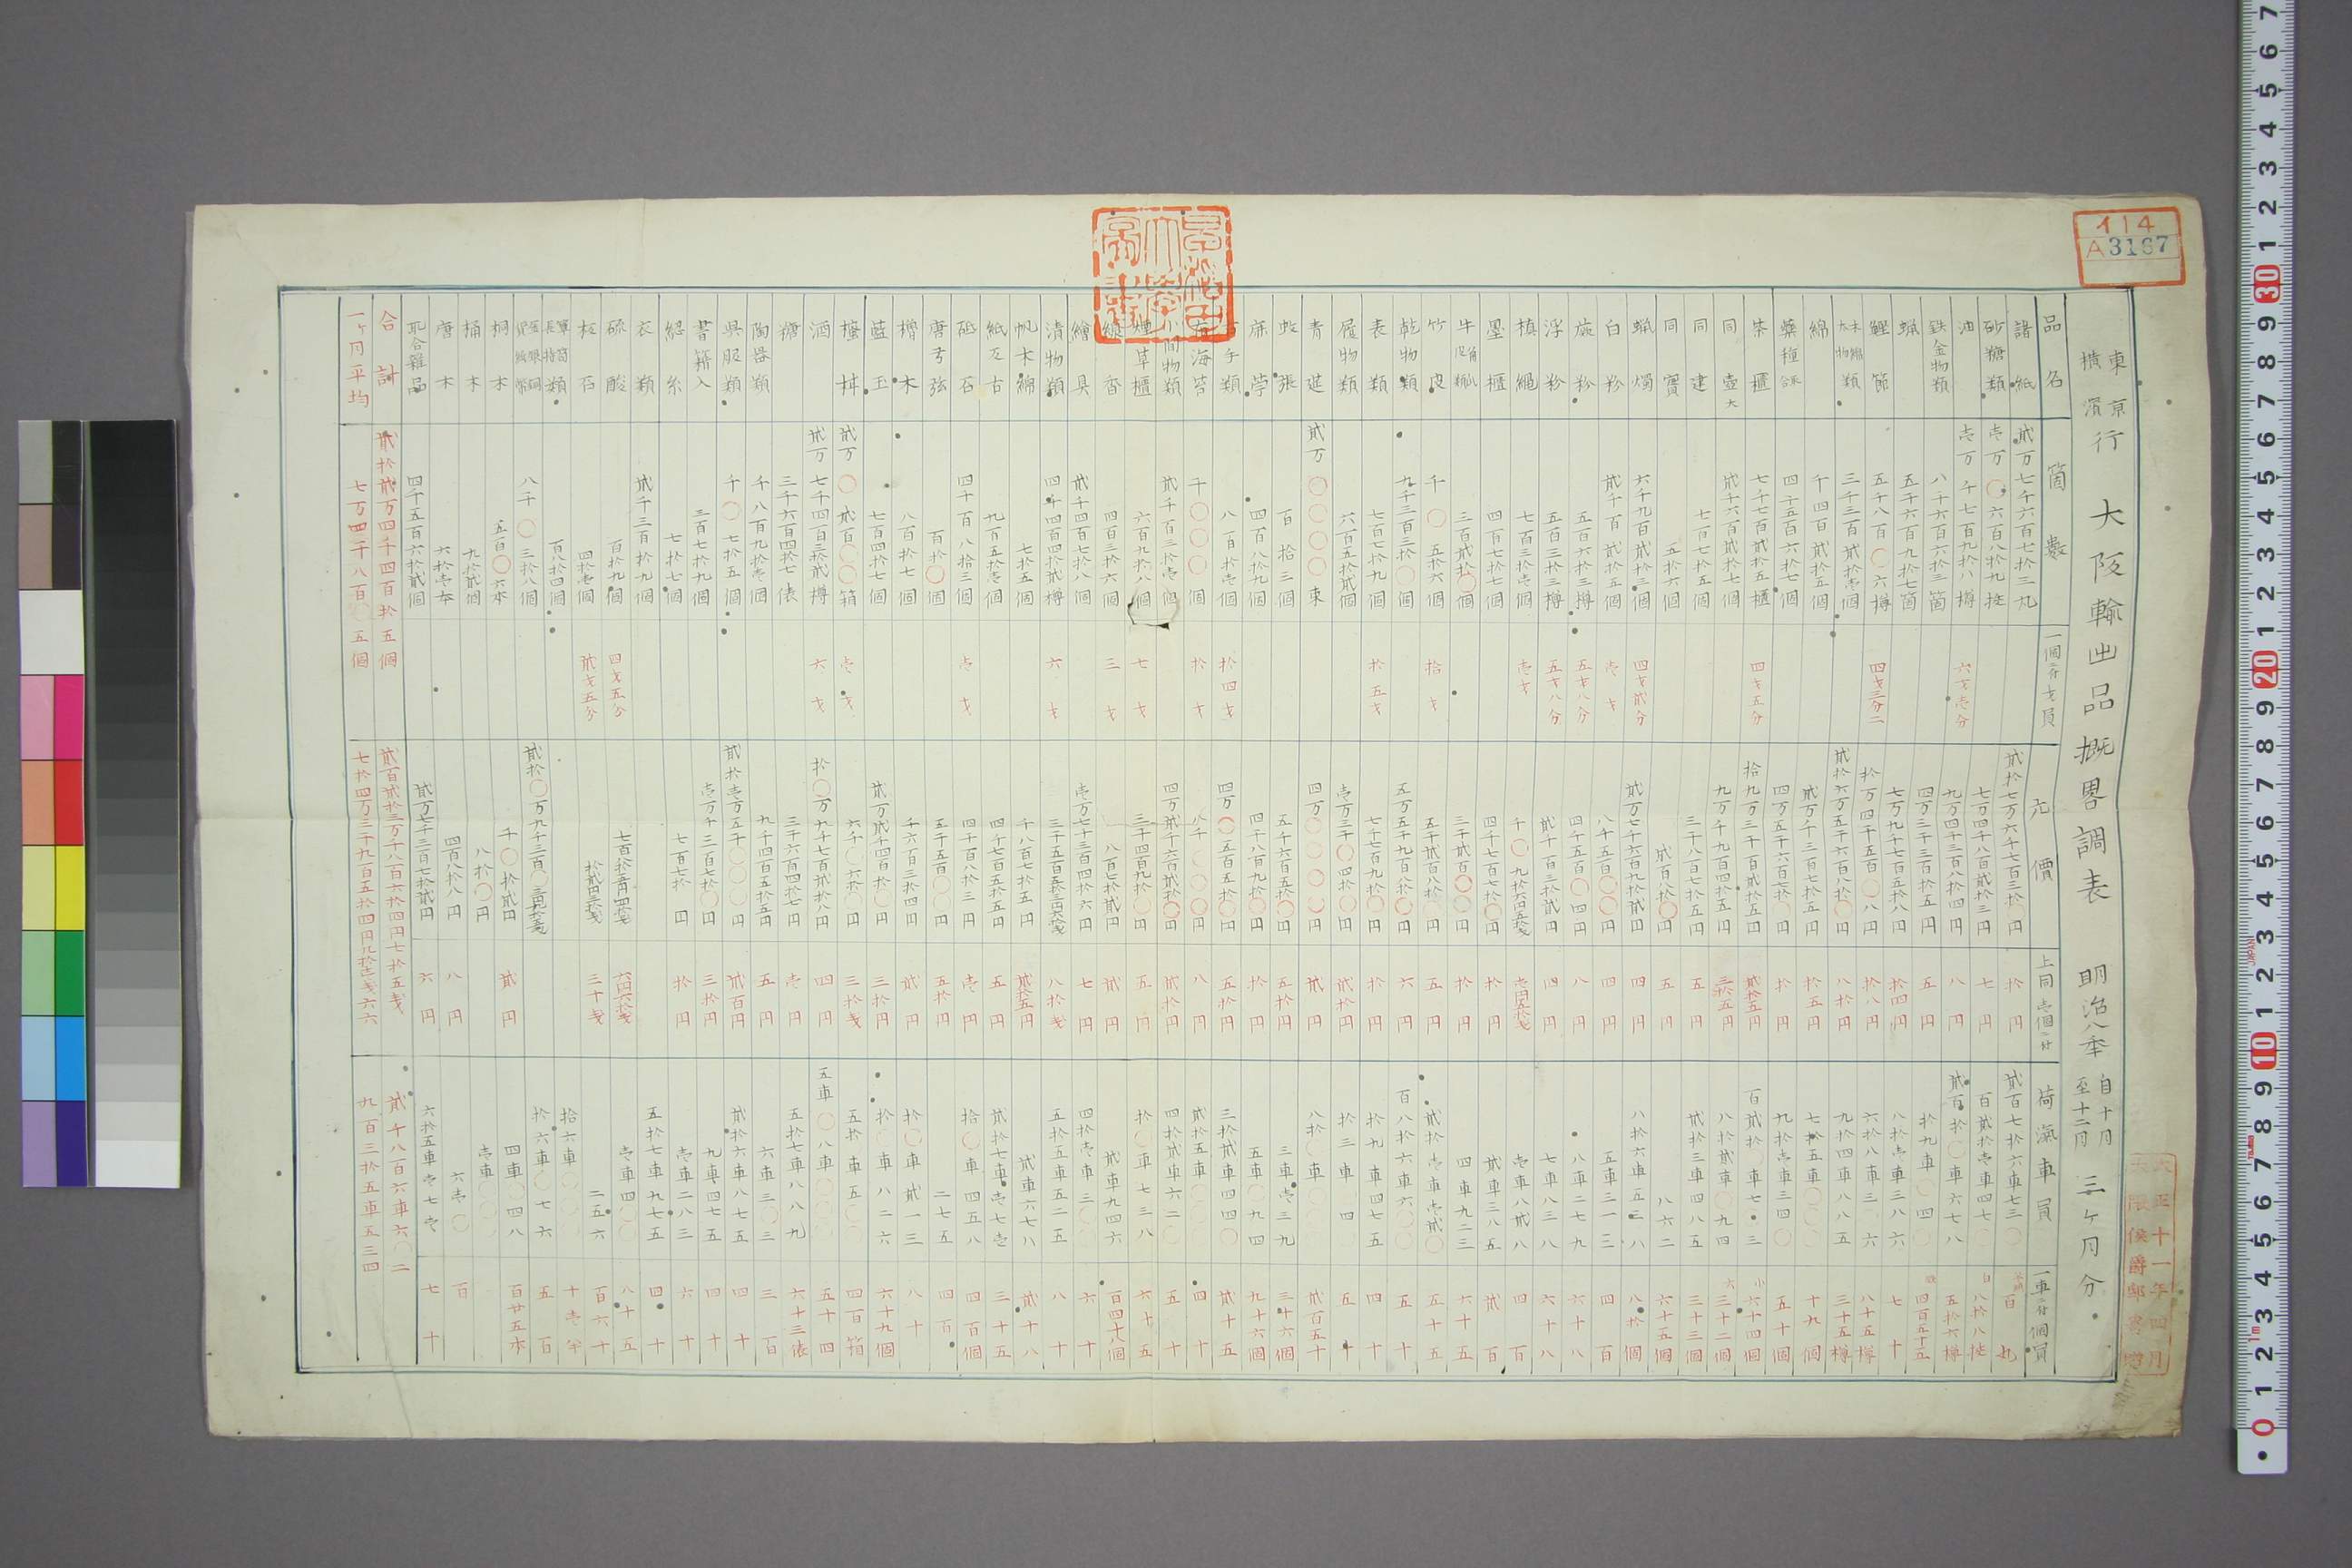 イ14
A3167
東京
横濱
行 大阪輸出品概畧調表 明治八年 自十月
至十二月
三ヶ月分
品名 箇數 一個ニ付才員 元價 上同壱個ニ付 荷滊車員 一車ニ付個員
諸紙 貳万七千六百七拾三丸 貳拾七万六千七百三拾円 拾円 貳百七拾六車七三〇 百丸
砂糖類 壱万〇六百八拾九挺 七万四千八百貳拾三円 七円 百貳拾壱車四七 八拾八挺
油 壱万千七百九拾八樽 六才壱分 九万四千三百八拾四円 八円 貳百拾〇車六七八 五拾六樽
鉄金物類 八千六百六拾三箇 四万三千三百拾五円 五円 拾九車〇四〇 四百五十五
蝋 五千六百九拾七箇 七万九千七百五拾八円 拾四円 八拾壱車三八六 七十
鰹節 五千八百〇六樽 四才三分二 拾万四千五百〇八円 拾八円 六拾八車三〇六 八十五樽
木綿太物類 三千三百貳拾壱個 貳拾六万五千六百八拾〇円 八拾円 九拾四車八八五 三十五樽
綿 千四百貳拾五個 貳万千三百七拾五円 拾五円 七拾五車〇〇〇 十九個
藥種 四千五百六拾七個 四万五千六百七拾円 拾円 九拾壱車三四〇 五十個
茶櫃 七千七百貳拾五櫃 四才五分 拾九万三千百貳拾五円 貳拾五円 百貳拾〇車七〇三 六十四個
同壷大 貳千六百貳拾七個 九万千九百四拾五円 三拾五円 八拾貳車〇九四 三十二個
同建 七百七拾五個 三千八百七拾五円 五円 貳拾三車四八五 三十三個
同寶 五拾六個 貳百八拾〇円 五円 八六二 六十五個
蝋燭 六千九百貳拾三個 四才貳分 貳万七千六百九拾貳円 四円 八拾六車五三八 八拾個
白粉 貳千百貳拾五個 壱才 八千五百〇〇円 四円 五車三一三 四百
五百六拾三樽 五才八分 四千五百〇四円 八円 八車二七九 六十八
浮粉 五百三拾三樽 五才八分 貳千百三拾貳円 四円 七車八三八 六十八
槙縄 七百三拾壱個 壱才 壱車八貳八 四百
墨櫃 四百七拾七個 四千七百七拾〇円 拾円 貳車三八五 貳百
三百貳拾〇個 三千貳百〇〇円 拾円 四車九二三 六十五
竹皮 千〇五拾六個 拾才 五千貳百八拾円 五円 貳拾壱車壱貳〇 五十
乾物類 九千三百三拾〇個 五万五千九百八拾〇円 六円 百八拾六車六〇〇 五十
表類 七百七拾九個 拾五才 七千七百九拾〇円 拾円 拾九車四七五 四十
履物類 六百五拾貳個 壱万三千〇四拾〇円 貳拾円 拾三車〇四 五十
青莚 貳万〇〇〇〇束 四万〇〇〇〇円 貳円 八拾〇車 貳百五十
百拾三個 五千六百五拾〇円 五拾円 三車壱三九 三十六個
四百八拾九個 四千八百九拾〇円 拾円 五車〇九四 九十六個
八百拾壱個 拾四才 四万〇五百五拾〇円 五拾円 三拾貳車四四〇 貳十五
海苔 千〇〇〇個 拾才 八千〇〇〇円 八円 貳拾五車〇〇〇 四十
間物類 貳千百三拾壱個 四万貳千六百貳拾〇円 貳拾円 四拾貳車六二〇 五十
草櫃 六百九拾八個 七才 三千四百九拾〇円 五円 拾〇車七三八 六十五
線香 四百三拾六個 三才 八百七拾貳円 貳円 貳車九四六 百四十八個
繪具 貳千四百七拾八個 壱万七千三百四拾六円 七円 四拾壱車三〇〇 六十
漬物類 四千四百四拾貳樽 六才 八拾戔 五拾五車五二五 八十
帆木綿 七拾五個 千八百七拾五円 貳拾五円 貳車六七八 貳十八
紙反古 九百五拾壱個 四千七百五拾五円 五円 貳拾七車壱七壱 三十五
砥石 四千百八拾三個 壱才 四千百八拾三円 壱円 拾〇車四五八 四百個
唐弓弦 百拾〇個 五千五百〇〇円 五拾円 二七五 四百
檜木 八百拾七個 千六百三拾四円 貳円 拾〇車貳一三 八十
藍玉 七百四拾七個 貳万貳千四百拾〇円 三拾円 拾〇車八二六 六十九個
貳万〇貳百〇〇箱 壱才 六千〇六拾〇円 三拾戔 五拾〇車五〇〇 四百箱
酒 貳万七千四百三拾貳樽 六才 拾〇万九千七百貳拾八円 四円 五車〇八車〇〇〇 五十四
糖 三千六百四拾七俵 三千六百四拾七円 壱円 五拾七車八八九 六十三俵
陶器類 千八百九拾壱個 九千四百五拾五円 五円 六車三〇三 三百
呉服類 千〇七拾五個 貳拾壱万五千〇〇〇円 貳百円 貳拾六車八七五 四十
書籍入 三百七拾九個 壱万千三百七拾〇円 三拾円 九車四七五 四十
総糸 七拾七個 七百七拾円 拾円 壱車二八三 六十
衣類 貳千三百拾九個 五拾七車九七五 四十
硫酸 百拾九個 四才五分 壱車四〇〇 八十五
板石 四拾壱個 貳才五分 三十戔 二五六 百六十
長持類 百八拾四個 拾六車〇〇〇
八千〇三拾八個 拾六車〇七六 五百
桐木 五百〇六本 千〇拾貳円 貳円 四車〇四八 百廿五本
桶木 九拾貳個 八拾〇円 壱車〇〇〇
唐木 六拾壱本 四百八拾八円 八円 六壱〇 百
取合雑品 四千五百六拾貳個 貳万七千三百七拾貳円 六円 六拾五車壱七壱 七十
合計 貳拾貳万四千四百拾五個 貳百貳拾三万千八百六拾四円七拾五戔 貳千八百六車六〇二
一ヶ月平均 七万四千八百〇五個 七拾四万三千九百五拾四円九拾壱戔六六 九百三拾五車五三四
大正十一年四月
大隈侯爵邸寄贈